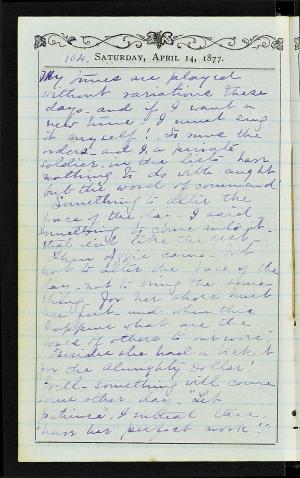 104. SATURDAY, APRIL 14, 1877.
My tunes are played
without variations these
days - and if I want a
new tune I must sing
it myself! So runs the
orders and I a private
soldier, in the lists have
nothing to do with aught
but the word of command!
Something to alter the
face of the day - I said
Something to come into it -
that isn't like the rest
Then Aggie came - but
not to alter the face of the
day - not to bring the some-
thing. For her shoes hurt
her feet - and when this
happens what are the
woes of others to our own.
Besides she had a ticket
for the Almighty Dollar!
Well - something will come
some other day - "Let
patience", I entreat thee,
"have her perfect work"!